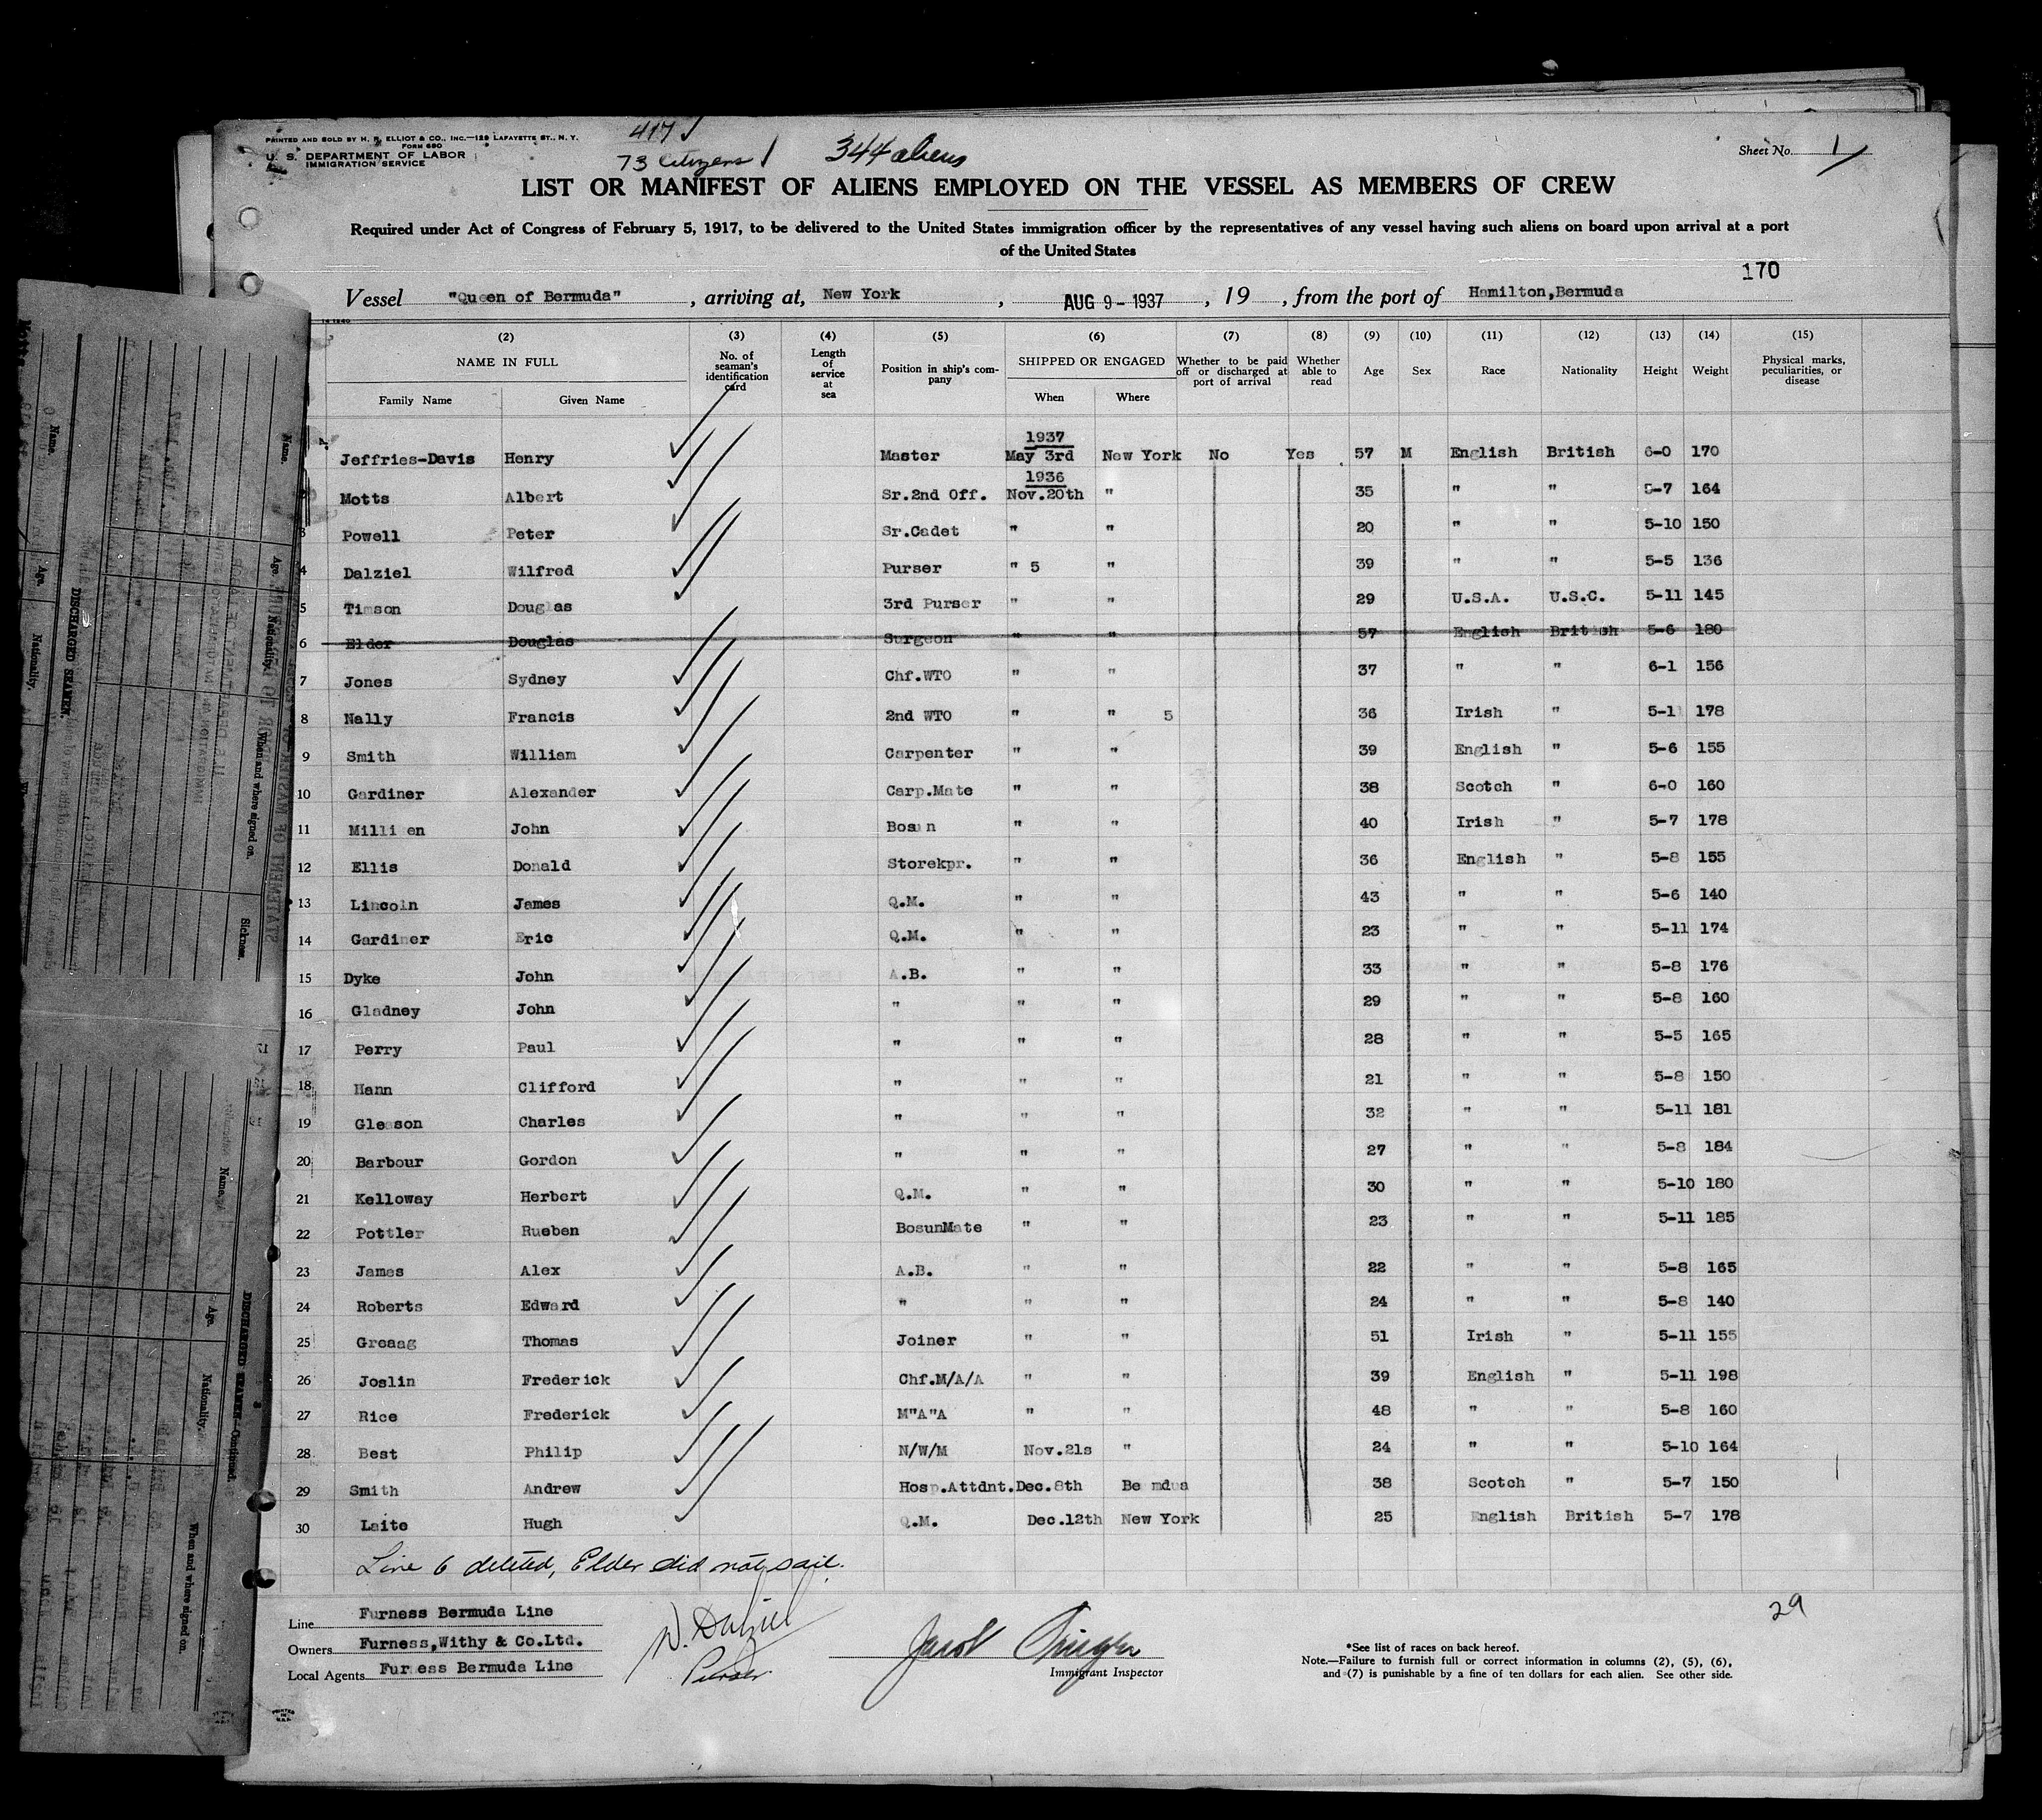 417
73 Citizens 344 aliens
PRINTED AND SOLD BY H. R. ELLIOT & CO., INC.—129 LAFAYETTE ST., N. Y.
FORM 680
U. S. DEPARTMENT OF LABOR
IMMIGRATION SERVICE
Sheet No. 1
LIST OR MANIFEST OF ALIENS EMPLOYED ON THE VESSEL AS MEMBERS OF CREW
Required under Act of Congress of February 5, 1917, to be delivered to the United States immigration officer by the representatives of any vessel having such aliens on board upon arrival at a port
of the United States
170
Vessel "Queen of Bermuda", arriving at, New York, AUG 9 - 1937, 19 , from the port of Hamilton,Bermuda
(2) (3) (4) (5) (6) (7) (8) (9) (10) (11) (12) (13) (14) (15)
NAME IN FULL No. of seaman's identification card Length of service at sea Position in ship's company SHIPPED OR ENGAGED Whether to be paid off or discharged at port of arrival Whether able to read Age Sex Race Nationality Height Weight Physical marks, peculiarities, or disease
Family Name Given Name When Where
1937
Jeffries-Davis Henry Master May 3rd New York No Yes 57 M English British 6-0 170
1936
2 Motts Albert Sr.2nd Off. Nov.20th " 35 " " 5-7 164
3 Powell Peter Sr.Cadet " " 20 " " 5-10 150
4 Dalziel Wilfred Purser " 5 " 39 " " 5-5 136
5 Timson Douglas 3rd Purser " " 29 U.S.A. U.S.C. 5-11 145
6 Elder Douglas Surgeon " " 57 English British 5-6 180
7 Jones Sydney Chf.WTO " " 37 " " 6-1 156
8 Nally Francis 2nd WTO " " 5 36 Irish " 5-1 178
9 Smith William Carpenter " " 39 English " 5-6 155
10 Gardiner Alexander Carp.Mate " " 38 Scotch " 6-0 160
11 Milli en John Bosun " " 40 Irish " 5-7 178
12 Ellis Donald Storekpr. " " 36 English " 5-8 155
13 Lincoln James Q.M. " " 43 " " 5-6 140
14 Gardiner Eric Q.M. " " 23 " " 5-11 174
15 Dyke John A.B. " " 33 " " 5-8 176
16 Gladney John " " " 29 " " 5-8 160
17 Perry Paul " " " 28 " " 5-5 165
18 Hann Clifford " " " 21 " " 5-8 150
19 Gleason Charles " " " 32 " " 5-11 181
20 Barbour Gordon " " " 27 " " 5-8 184
21 Kelloway Herbert Q.M. " " 30 " " 5-10 180
22 Pottler Rueben BosunMate " " 23 " " 5-11 185
23 James Alex A.B. " " 22 " " 5-8 165
24 Roberts Edward " " " 24 " " 5-8 140
25 Greaag Thomas Joiner " " 51 Irish " 5-11 155
26 Joslin Frederick Chf.M/A/A " " 39 English " 5-11 198
27 Rice Frederick M"A"A " " 48 " " 5-8 160
28 Best Philip N/W/M Nov.21s " 24 " " 5-10 164
29 Smith Andrew Hosp.Attdnt. Dec.8th Be mdua 38 Scotch " 5-7 150
30 Laite Hugh Q.M. Dec.12th New York 25 English British 5-7 178
Line 6 deleted, Elder did not sail.
29
Line Furness Bermuda Line
Owners Furness,Withy & Co.Ltd.
Local Agents Furness Bermuda Line
W. Dalziel
Purser
Jacob
Immigrant Inspector
*See list of races on back hereof.
Note.—Failure to furnish full or correct information in columns (2), (5), (6),
and (7) is punishable by a fine of ten dollars for each alien. See other side.
DISCHARGED SEAMEN.
Name. Age. Nationality. When and where signed on. Sickness.
DISCHARGED SEAMEN—Continued.
Name. Age. Nationality. When and where signed on.